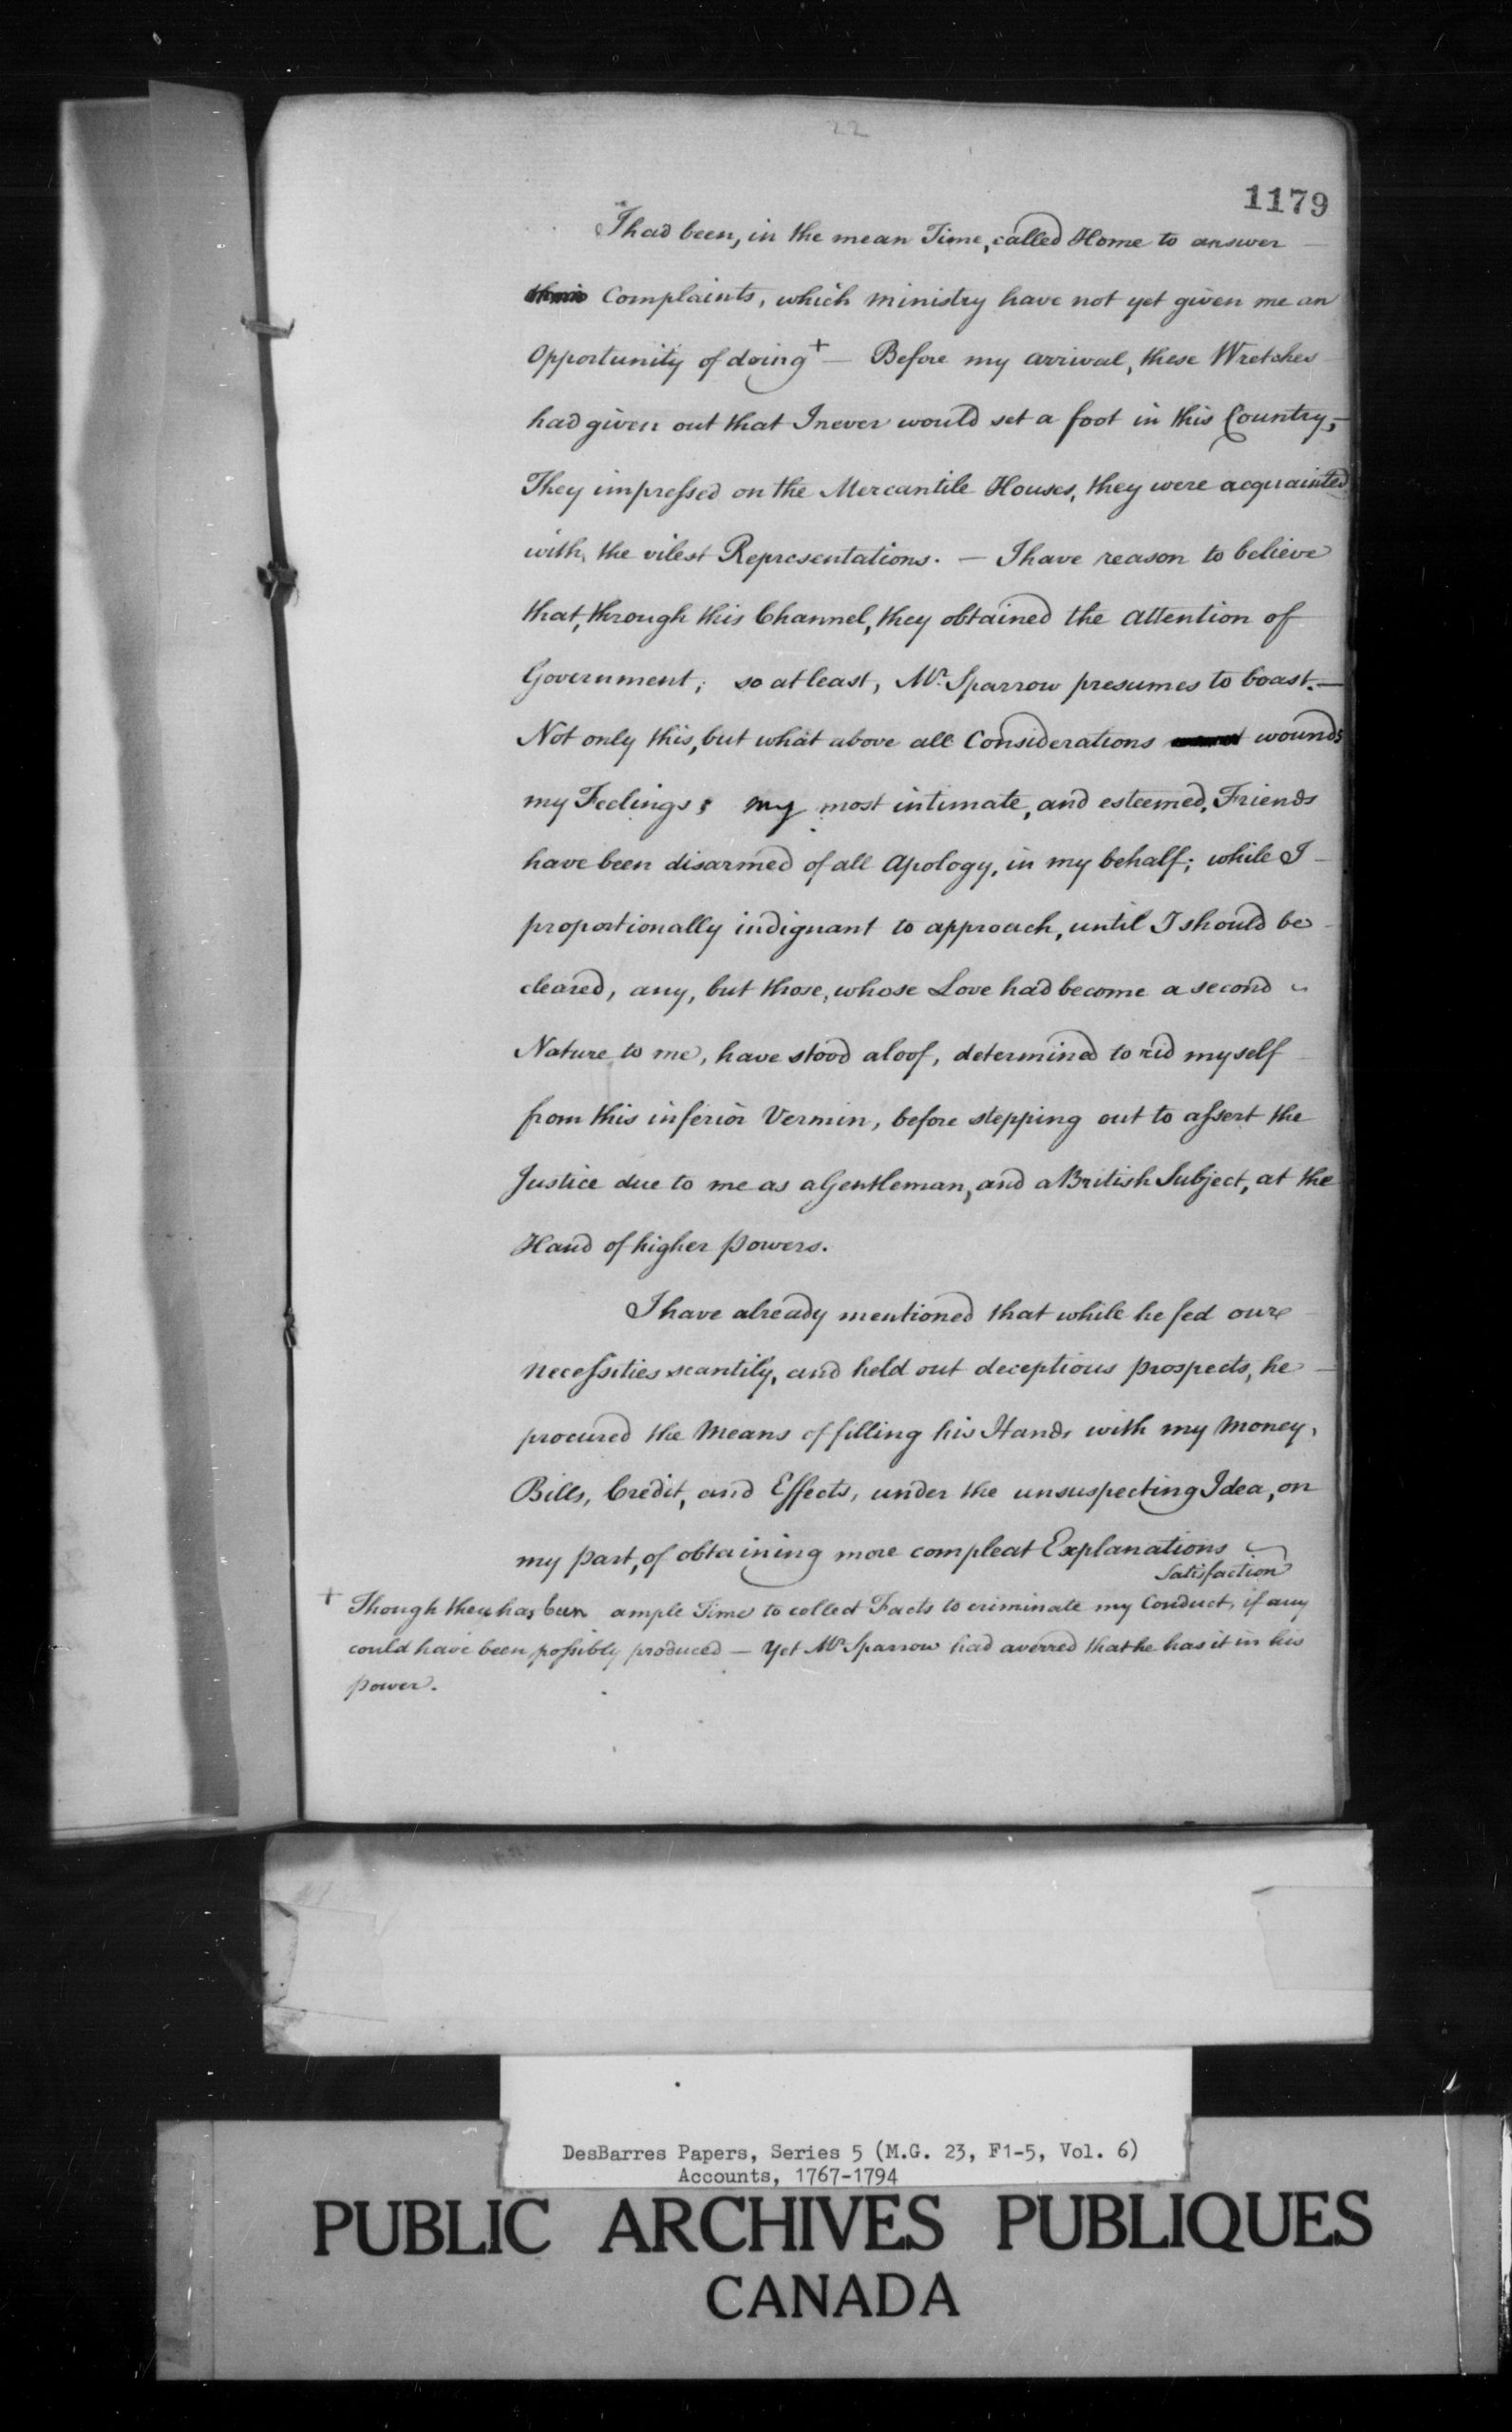 22
1179
I had been, in the mean Time, called Home to answer
Complaints, which ministry have not yet given me an
Opportunity of doing + — Before my arrival, these Wretches
had given out that I never would set a foot in this Country, —
They impressed on the Mercantile Houses, they were acquainted
with, the vilest Representations. — I have reason to believe
that, through this Channel, they obtained the attention of
Government; so at least, Mr. Sparrow presumes to boast. —
Not only this, but what above all Considerations wounds
my Feelings; my most intimate, and esteemed, Friends
have been disarmed of all Apology, in my behalf; while I
proportionally indignant to approach, until I should be
cleared, any, but those, whose Love had become a second
Nature to me, have stood aloof, determined to rid myself
from this inferior Vermin, before stepping out to assert the
Justice due to me as a Gentleman, and a British Subject, at the
Hand of higher powers.
I have already mentioned that while he fed our
necessities scantily, and held out deceptious prospects, he
procured the Means of filling his Hands with my money,
Bills, Credit, and Effects, under the unsuspecting Idea, on
my part, of obtaining more compleat Explanations
Satisfaction
+ Though there has been ample Time to collect Facts to criminate my Conduct, if any
could have been possibly produced — Yet Mr Sparrow had averred that he has it in his
power.
DesBarres Papers, Series 5 (M.G. 23, F1-5, Vol. 6)
Accounts, 1767-1794
PUBLIC ARCHIVES PUBLIQUES
CANADA